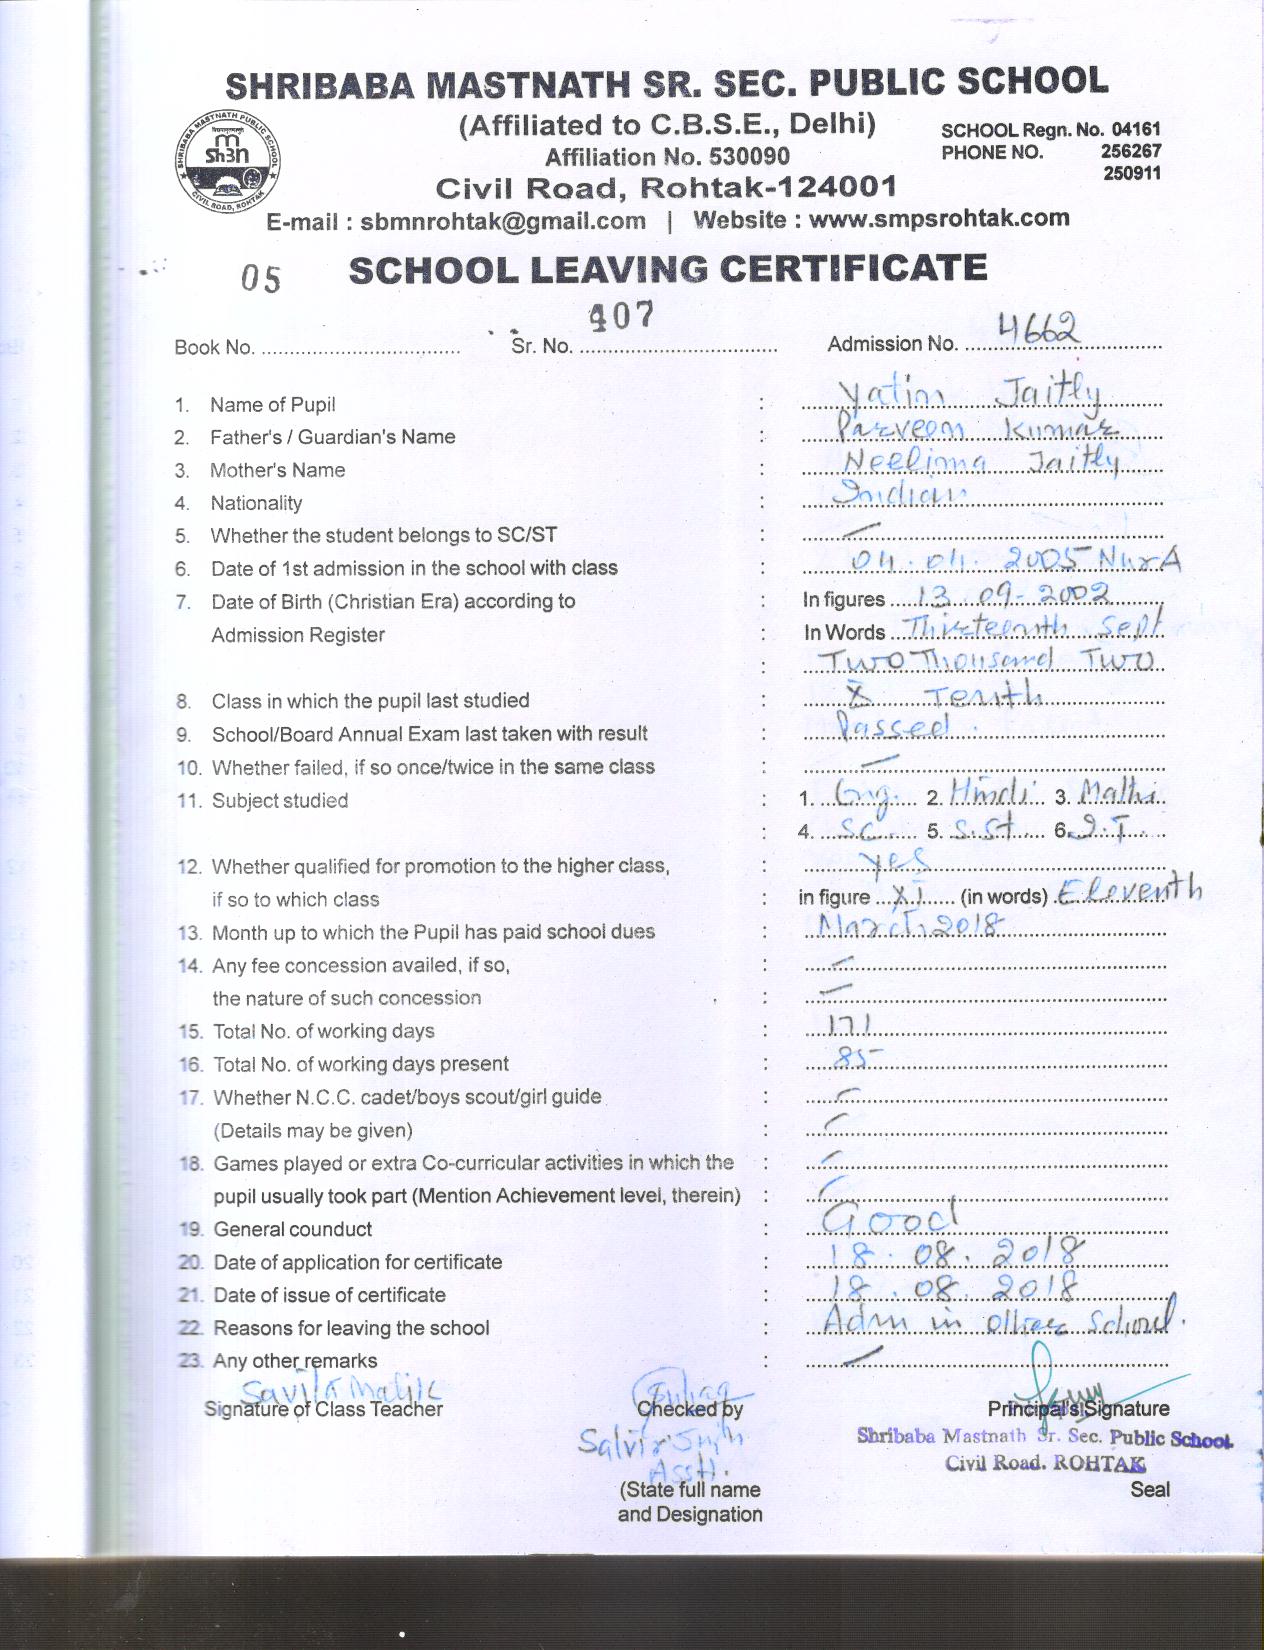 SHRIBABA MASTNATH SR. SEC. PUBLIC SCHOOL
(Affiliated to C.B.S.E., Delhi)
SCHOOL Regn. No. 04161
Affiliation No. 530090
PHONE NO. 256267
250911
Civil Road, Rohtak-124001
E-mail : sbmnrohtak@gmail.com | Website : www.smpsrohtak.com
SHRIBABA MASTNATH PUBLIC SCHOOL
CIVIL ROAD, ROHTAK
05 SCHOOL LEAVING CERTIFICATE
407
Book No. Sr. No. Admission No. 4662
1. Name of Pupil : Yatin Jaitly
2. Father's / Guardian's Name : Parveen Kumar
3. Mother's Name : Neelima Jaitly
4. Nationality : Indian
5. Whether the student belongs to SC/ST :
6. Date of 1st admission in the school with class : 04.04.2005 NurA
7. Date of Birth (Christian Era) according to : In figures 13-09-2002
Admission Register : In Words Thirteenth Sept
: Two Thousand Two
8. Class in which the pupil last studied : X Tenth
9. School/Board Annual Exam last taken with result : Passed.
10. Whether failed, if so once/twice in the same class :
11. Subject studied : 1. Eng. 2. Hindi 3. Maths
: 4. SC 5. S.St 6. I.T.
12. Whether qualified for promotion to the higher class, : yes
if so to which class : in figure XI (in words) Eleventh
13. Month up to which the Pupil has paid school dues : March, 2018
14. Any fee concession availed, if so, :
the nature of such concession :
15. Total No. of working days : 171
16. Total No. of working days present : 85
17. Whether N.C.C. cadet/boys scout/girl guide :
(Details may be given) :
18. Games played or extra Co-curricular activities in which the :
pupil usually took part (Mention Achievement level, therein) :
19. General counduct : Good
20. Date of application for certificate : 18.08.2018
21. Date of issue of certificate : 18.08.2018
22. Reasons for leaving the school : Adm in other School.
23. Any other remarks :
Savita Malik
Signature of Class Teacher Checked by Principal's Signature
Shribaba Mastnath Sr. Sec. Public School
Civil Road. ROHTAK
Asstt.
(State full name Seal
and Designation